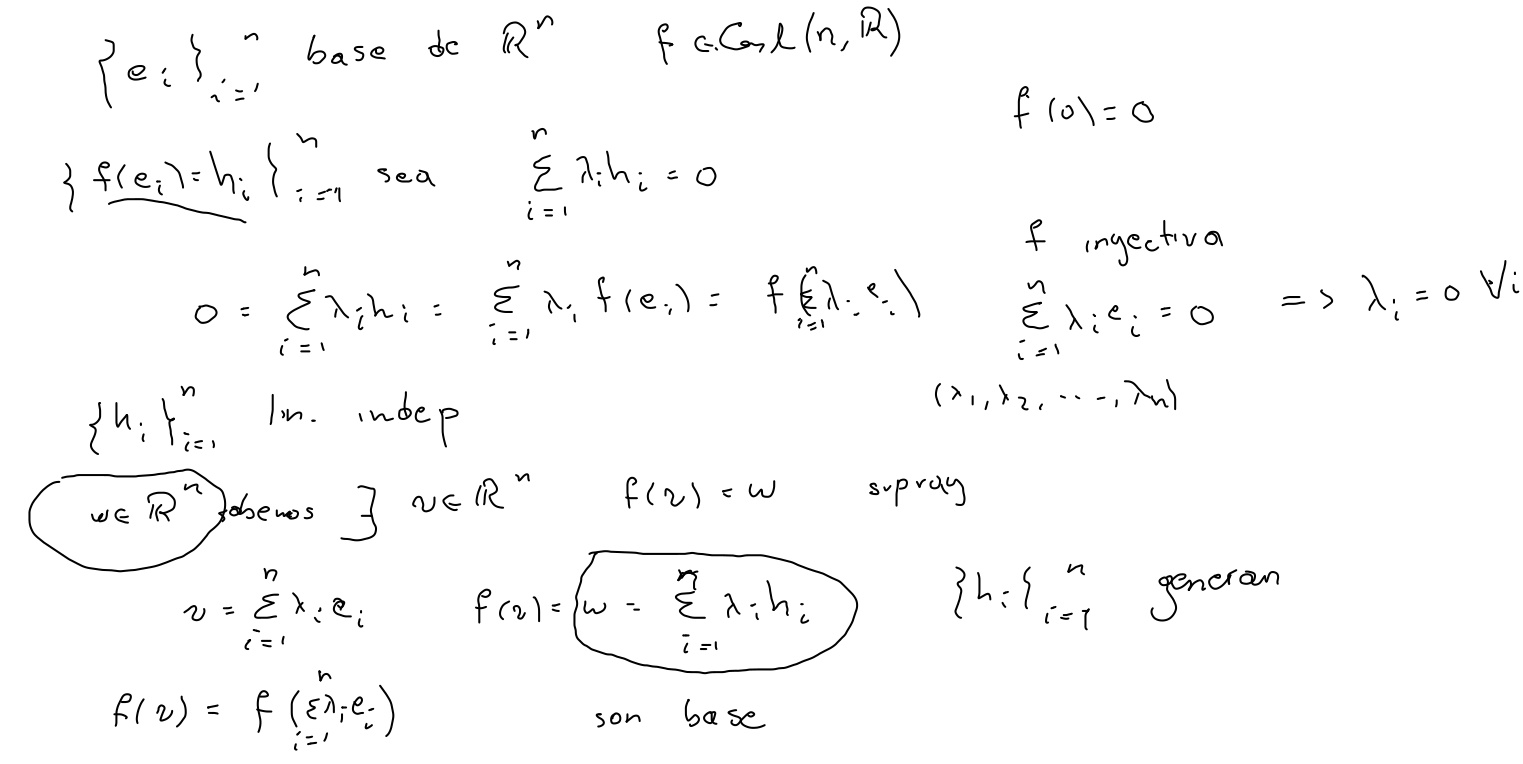 {e_i}_{i=1}^n base de ℝ^n f ∈ Gl(n, ℝ)
f(0) = 0
{f(e_i) = h_i}_{i=1}^n sea ∑_{i=1}^n λ_i h_i = 0
f inyectiva
0 = ∑_{i=1}^n λ_i h_i = ∑_{i=1}^n λ_i f(e_i) = f(∑_{i=1}^n λ_i e_i) ∑_{i=1}^n λ_i e_i = 0 => λ_i = 0 ∀i
(λ_1, λ_2, ..., λ_n)
{h_i}_{i=1}^n lin. indep
w ∈ ℝ^n sabemos ∃ v ∈ ℝ^n f(v) = w supray
v = ∑_{i=1}^n λ_i e_i f(v) = w = ∑_{i=1}^n λ_i h_i {h_i}_{i=1}^n generan
f(v) = f(∑_{i=1}^n λ_i e_i) son base